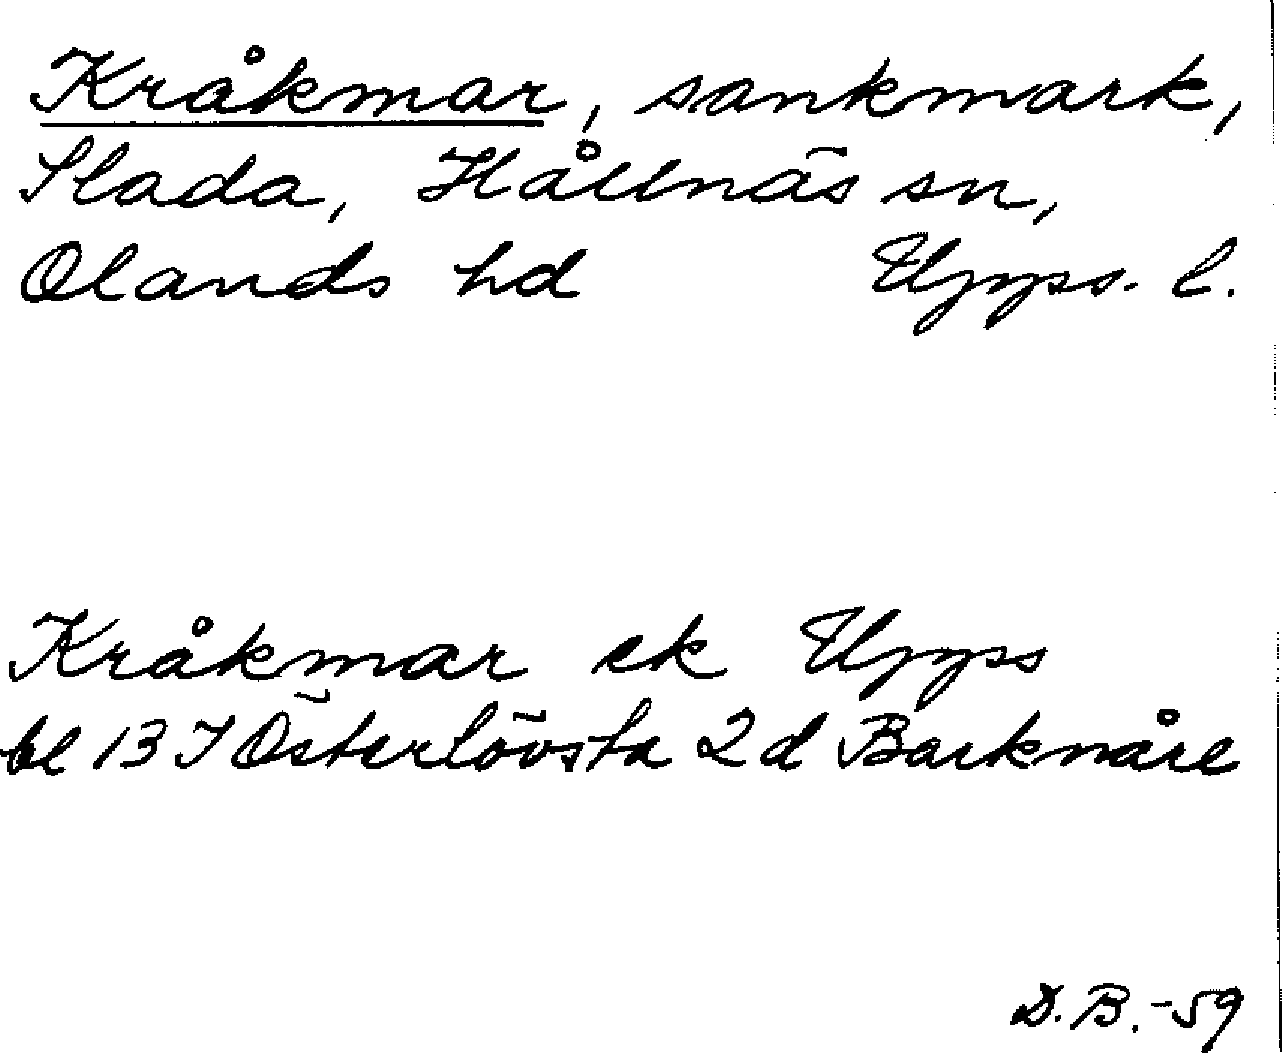 Kråkmar, sankmark,
Slada, Hållnäs sn,
Olands hd Upps. l.
Kråkmar ek Upps
bl 13 I Österlövsta 2d Barknåre
D.B.-59